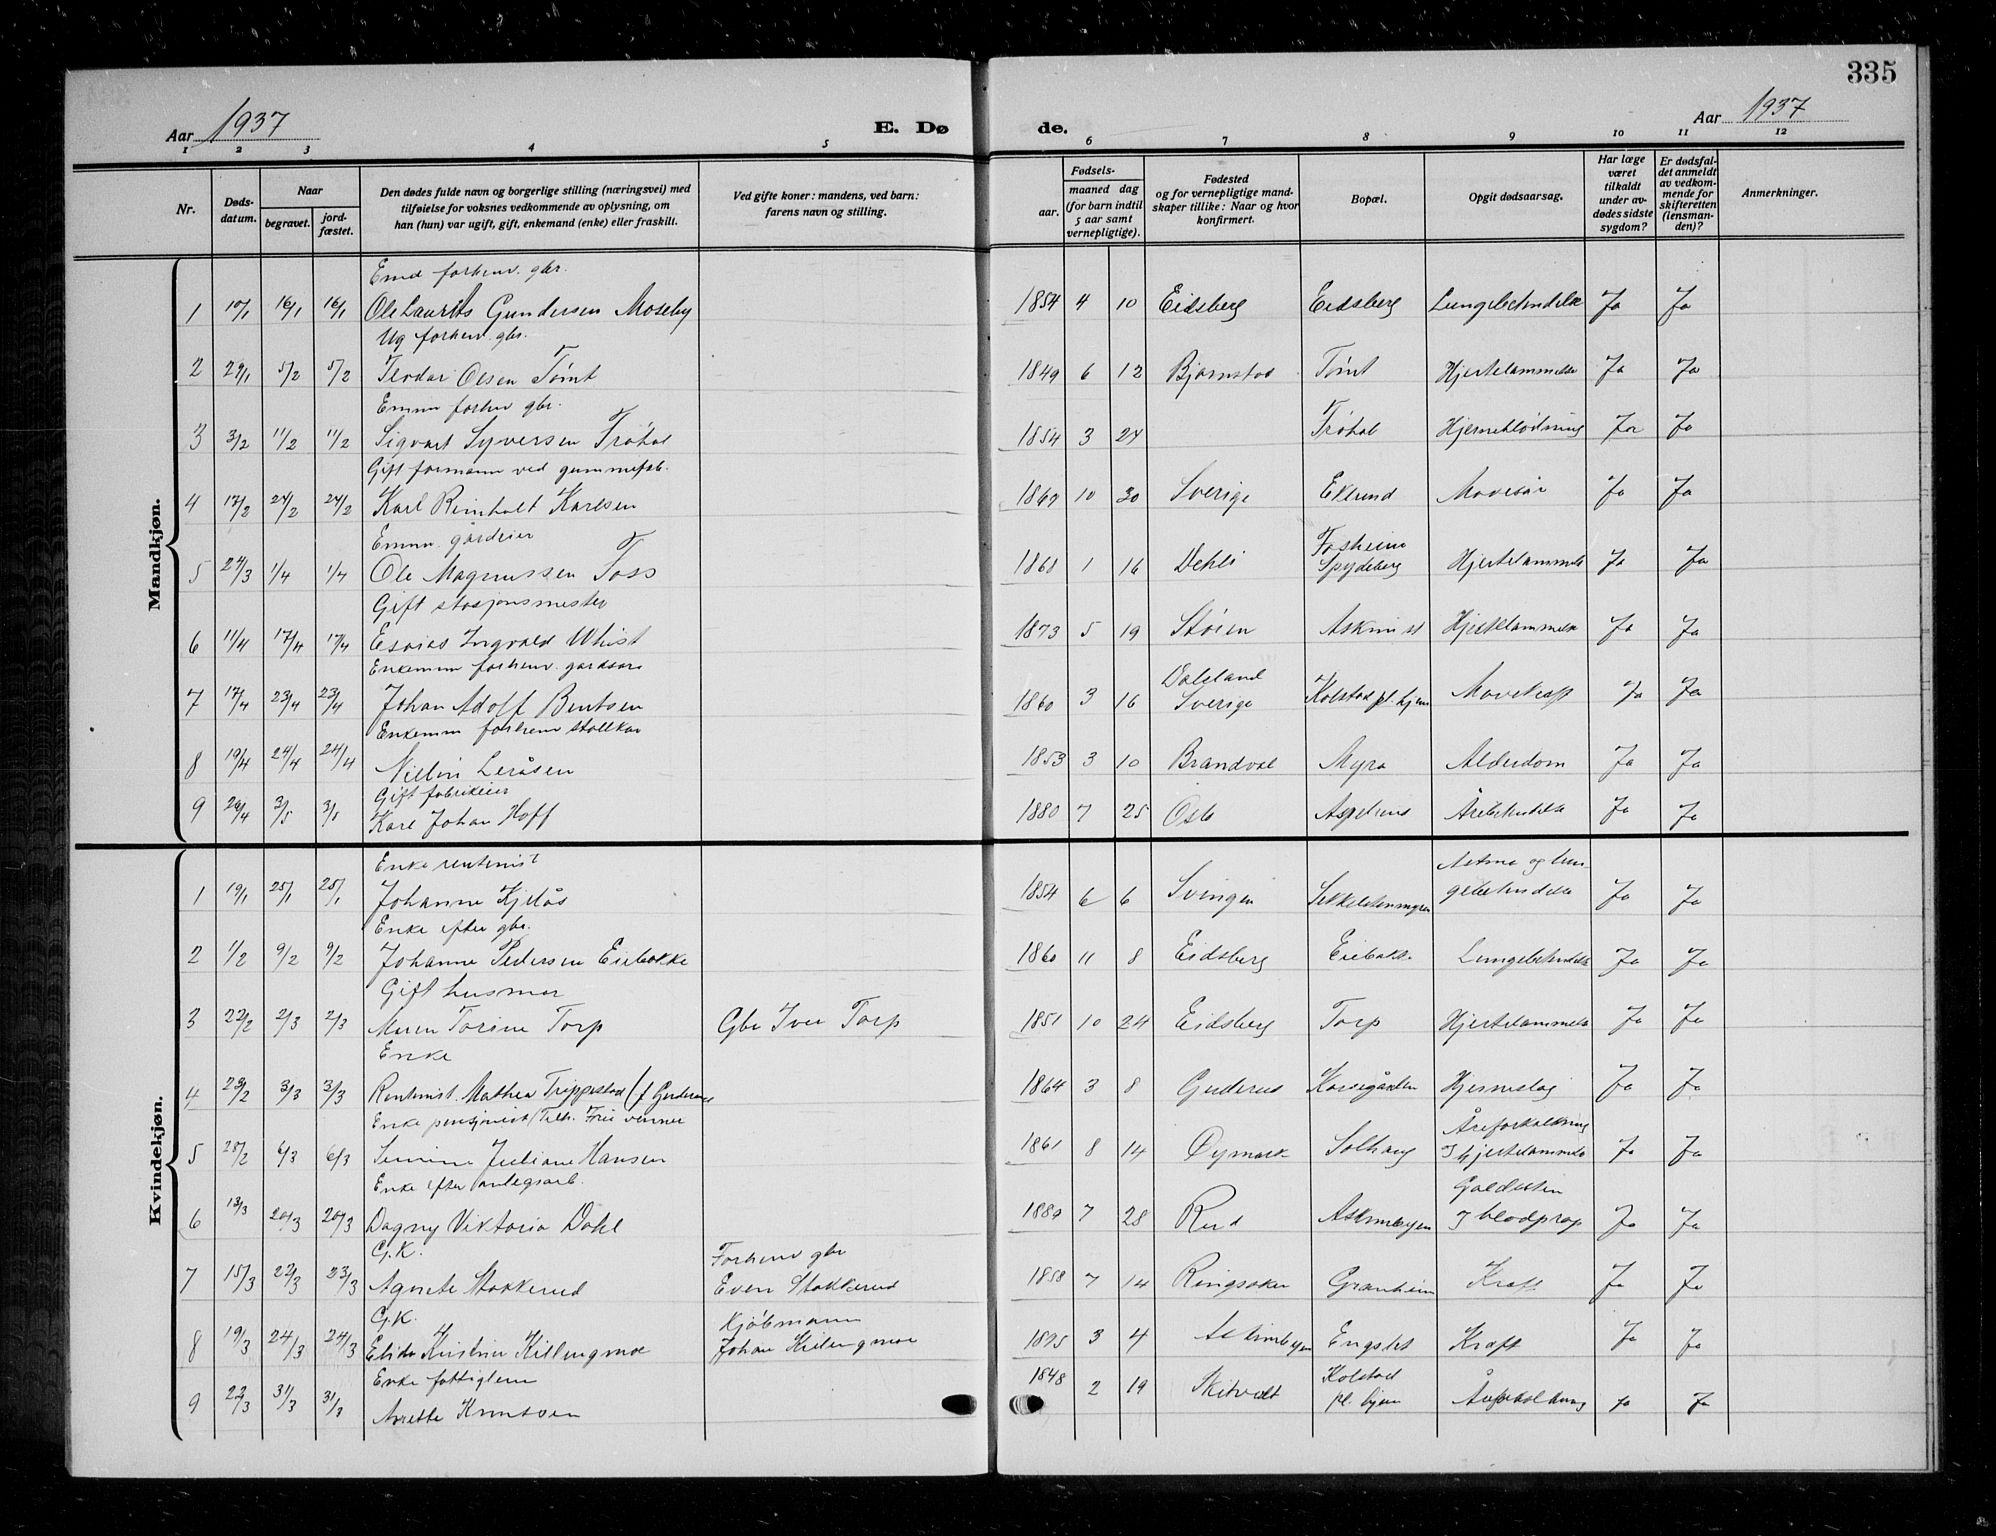 335
Aar 1937
E. Dø
de.
Aar 1937
1 2 3 4 5 6 7 8 9 10 11 12
Nr.
Døds-
datum.
Naar
begravet.
jord-
fæstet.
Den dødes fulde navn og borgerlige stilling (næringsvei) med
tilføielse for voksnes vedkommende av oplysning, om
han (hun) var ugift, gift, enkemand (enke) eller fraskilt.
Ved gifte koner: mandens, ved barn:
farens navn og stilling.
Fødsels-
aar.
maaned dag
(for barn indtil
5 aar samt
vernepligtige).
Fødested
og for vernepligtige mand-
skaper tillike: Naar og hvor
konfirmert.
Bopæl.
Opgit dødsaarsag.
Har læge
været
tilkaldt
under av-
dødes sidste
sygdom?
Er dødsfal-
det anmeldt
av vedkom-
mende for
skifteretten
(lensman-
den)?
Anmerkninger.
Mandkjøn.
forhenv. gbr.
1 10/1 16/1 16/1 Ole Laurits Gundersen Moseby 1854 4 10 Eidsberg Eidsberg Lungebetendelse Ja Ja
Ug forhenv. gbr.
2 29/1 5/2 5/2 Teodor Olsen Tømt 1849 6 12 Bjørnstad Tømt Hjertelammelse Ja Ja
Emm forhenv gbr.
3 3/2 11/2 11/2 Sigvart Syversen Trøhol 1854 3 24 Trøhol Hjerneblødning Ja Ja
Gift formann ved gummifab.
4 17/2 24/2 24/2 Karl Reinholt Karlsen 10 30 Sverige Eklund Mavesår Ja Ja
Emm. gårdeier
5 24/3 1/4 1/4 Ole Magnussen Toss 1 16 Dehli Spydeberg Hjertelammelse Ja Ja
Gift stasjonsmester
6 11/4 17/4 17/4 Esaias Ingvald Whist 1873 5 19 Støien Askim st Hjertelammelse Ja Ja
Enkemm forhenv. gardsarb
Dalsland
7 17/4 23/4 23/4 Johan Adolf Berntsen 1860 3 16 Sverige Kolstad pl. hjem Mavekreft Ja Ja
Enkemm forhenv stallkar
8 19/4 24/4 24/4 Leråsen 1853 3 10 Brandval Myra Alderdom Ja Ja
Gift fabrikeier
9 3/5 3/5 Karl Johan Hoff 1880 7 25 Oslo Årebetendelse Ja Ja
Kvindekjøn.
Enke rentenist
Astma og lun-
1 19/1 25/1 25/1 Johanne Kjelås 1854 6 6 Svingen gebetendelse Ja Ja
Enke efter gbr.
2 1/2 9/2 9/2 Johanne Pedersen Eiebakke 1860 11 8 Eidsberg Eiebakke Lungebetendelse Ja Ja
Gift husmor
3 22/2 2/3 2/3 Maren Torine Torp Gbr Iver Torp 1851 10 24 Eidsberg Torp Hjertelammelse Ja Ja
Enke
4 23/2 3/3 3/3 Rentenist. Mathea Trippestad 1864 3 8 Guderud Korsegården Hjerneslag Ja Ja
Enke pensjonist (Tilh. Frie venner
Åreforkalkning
5 28/2 6/3 6/3 Juliane Hansen 1861 8 14 Øymark Solhaug Hjertelammelse Ja Ja
Enke efter anlegsarb.
Galdesten
6 13/3 20/3 20/3 Dagny Viktoria Dahl 7 28 Rud Askimbyen blodprop Ja Ja
G.K.
Forhenv gbr
7 15/3 22/3 23/3 Agnete Stokkerud Even Stokkerud 1858 7 14 Ringsaker Granheim Kreft Ja Ja
G.K.
Kjøbmann
8 19/3 24/3 24/3 Elida Kristine Killingmoe Johan Killingmoe 1895 3 4 Askimbyen Engslet Kreft Ja Ja
Enke fattiglem
Kolstad
9 31/3 31/3 Anette Knutsen 1848 2 19 Skiptvedt pl. hjem Åreforkalkning Ja Ja